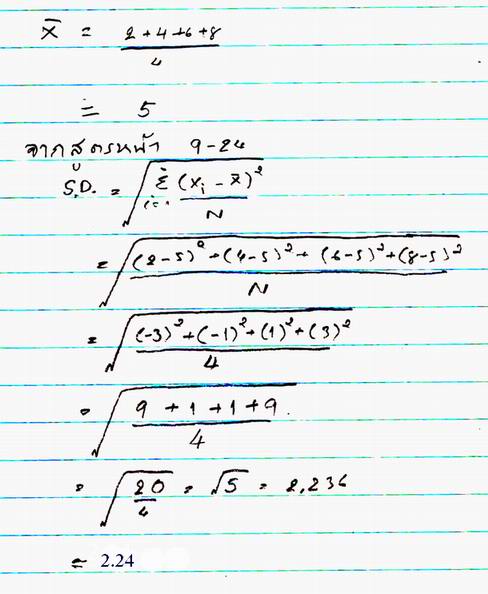 x̄ = (2+4+6+8)/4
= 5
จากสูตรหน้า 9-24
S.D. = √(Σ (xᵢ - x̄)²/N)
= √(((2-5)²+(4-5)²+(6-5)²+(8-5)²)/N)
= √(((-3)²+(-1)²+(1)²+(3)²)/4)
= √((9+1+1+9)/4)
= √(20/4) = √5 = 2.236
= 2.24